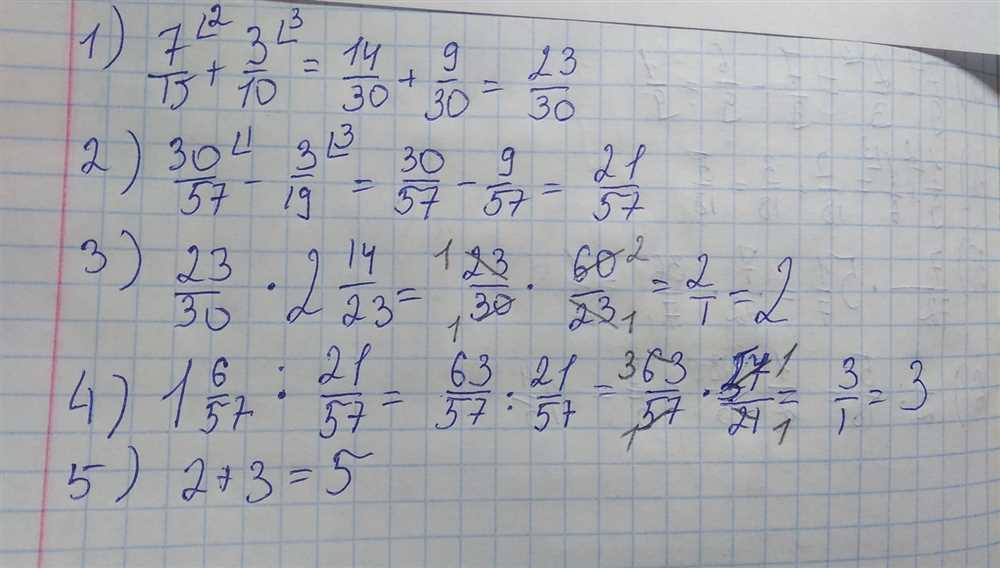 1) 7/15 ⌊2 + 3/10 ⌊3 = 14/30 + 9/30 = 23/30
2) 30/57 ⌊1 - 3/19 ⌊3 = 30/57 - 9/57 = 21/57
3) 23/30 · 2 14/23 = 1 23/30 1 · 60/23 2 1 = 2/1 = 2
4) 1 6/57 : 21/57 = 63/57 : 21/57 = 3 63/57 1 · 57/21 1 1 = 3/1 = 3
5) 2+3=5